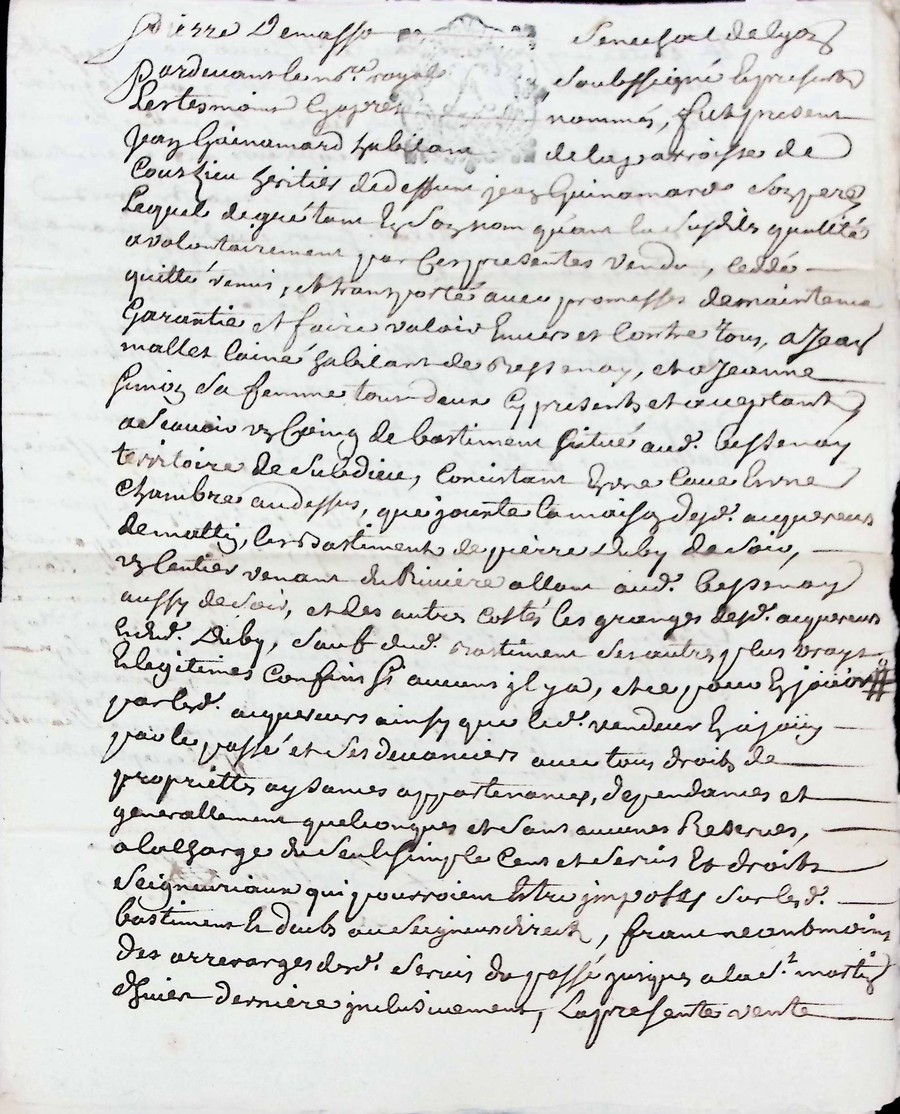 Pierre Demasso Seneschal de Lyon
Pardevant le no.re royal soubsigné et presents
les tesmoins cy apres nommés, fut present
Jean Guinamard habitant de la parroisse de
Courzieu heritier de deffunt jean Guinamard son pere
Lequel de gré tant en son nom qu'en la susditte qualité
a volontairement par ces presentes vendu, ceddé
quitté remis, et transporté avec promesses de maintenir
Garantie et faire valoir Envers et Contre tous, a Jean
mallet lainé habitant de Bessenay, et a Jeanne
sa femme tous deux cy presents et acceptants
a scavoir un Coing de bastiment situé aud.t bessenay
territoire de , Concistant En une Cave En une
Chambre au dessus, que jouxte la maison desd.t acquereurs
de matin, les Bastiments de pierre Duby de soir,
un sentier venant du Rivière allant aud.t bessenay
aussy de soir, et des autres costés les granges desd.t acquereurs
et dud.t Duby, sauf dud.t Bastiment ses autres plus vrays
et legitimes Confins sy aucuns jl y a, et ce pour En jouir #
par lesd.t acquereurs ainsy que led.t vendeur En a jouy
par le passé et ses devanciers avec tous droits de
propriettes aysances appartenances, dependances et
generallement quelconques et sans aucunes Reserves,
a la charge du seul simple Cens et servis Et droits
seigneuriaux qui pourroient Estre jmposés sur led.t
bastiment et deubs au seigneur direct, franc neantmoins
des arrerages desd.t servis du passé jusques a la s.t martin
d'hiver derniere jnclusivement, La presente vente